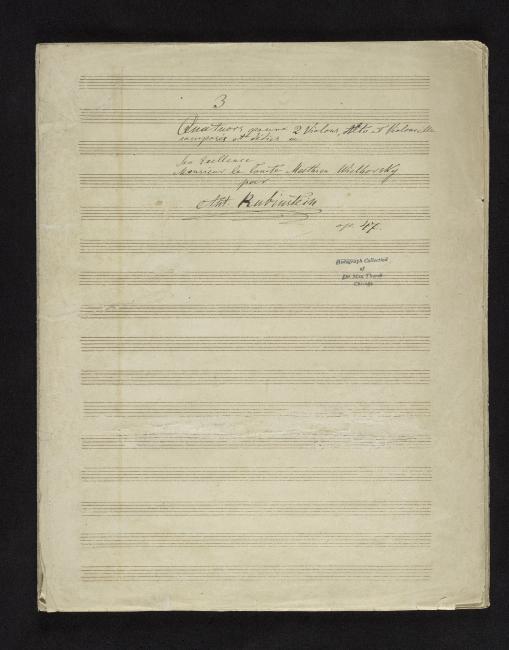 3
Quatuors pour 2 Violons, Alto et Violoncelle
composés et dédiés à
Son Excellence
Monsieur le Comte Mathieu Wielhorsky
par
Ant. Rubinstein
op. 47.
Autograph Collection
of
Chicago